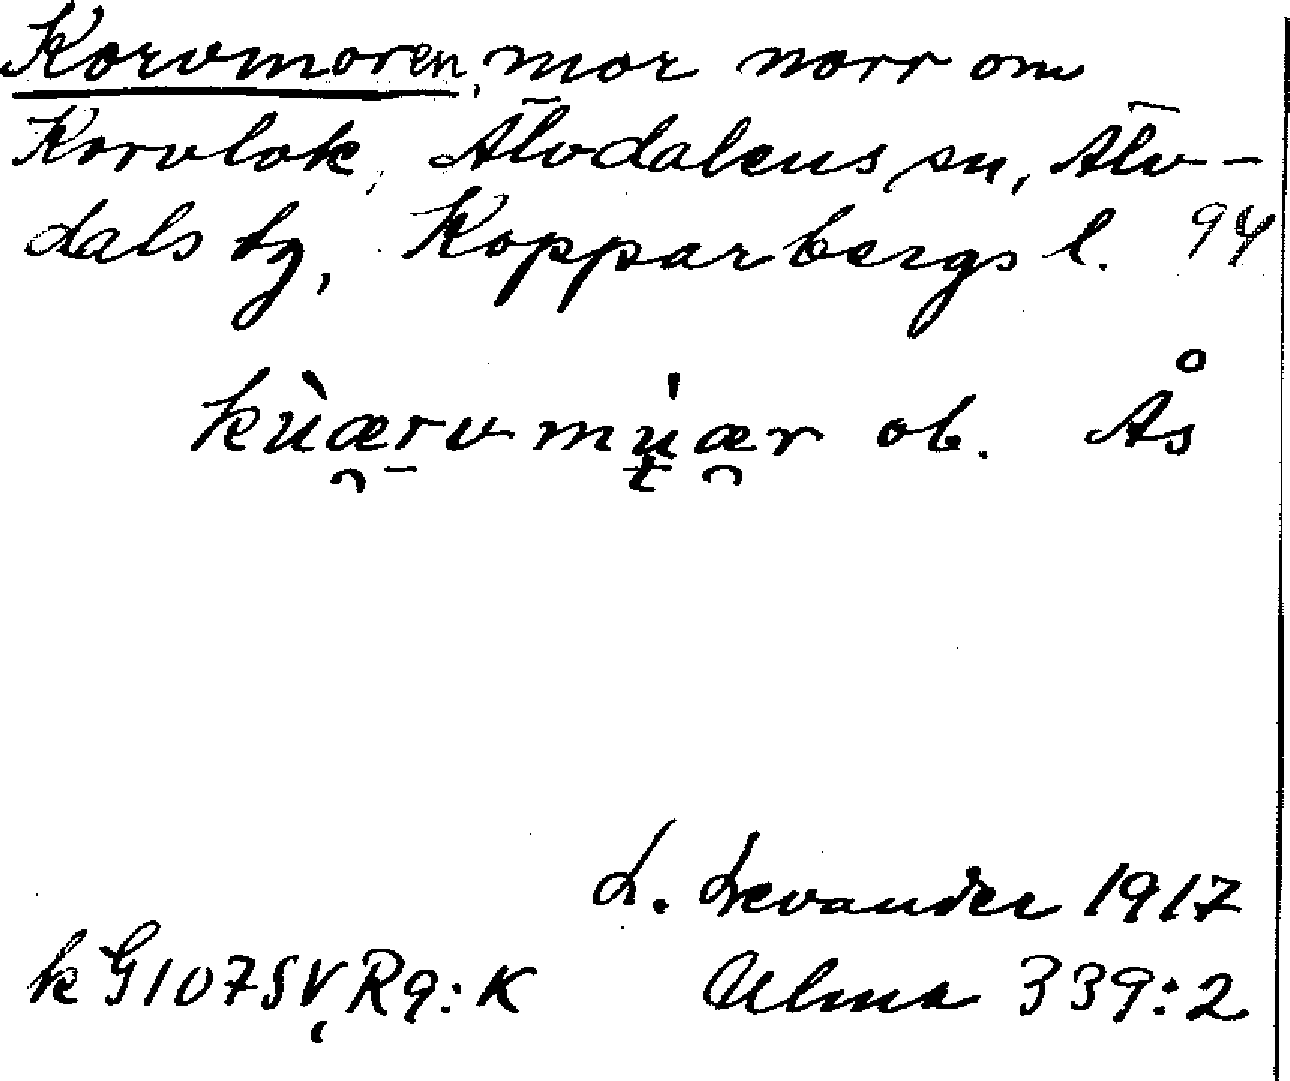 Korvmoren, mor norr om
Korvlok, Älvdalens sn, Älv-
dals tg, Kopparbergs l. 94
kùærvmu̍ær ob. Ås
L. Levander 1917
k G107SV, R9:K Ulma 339:2